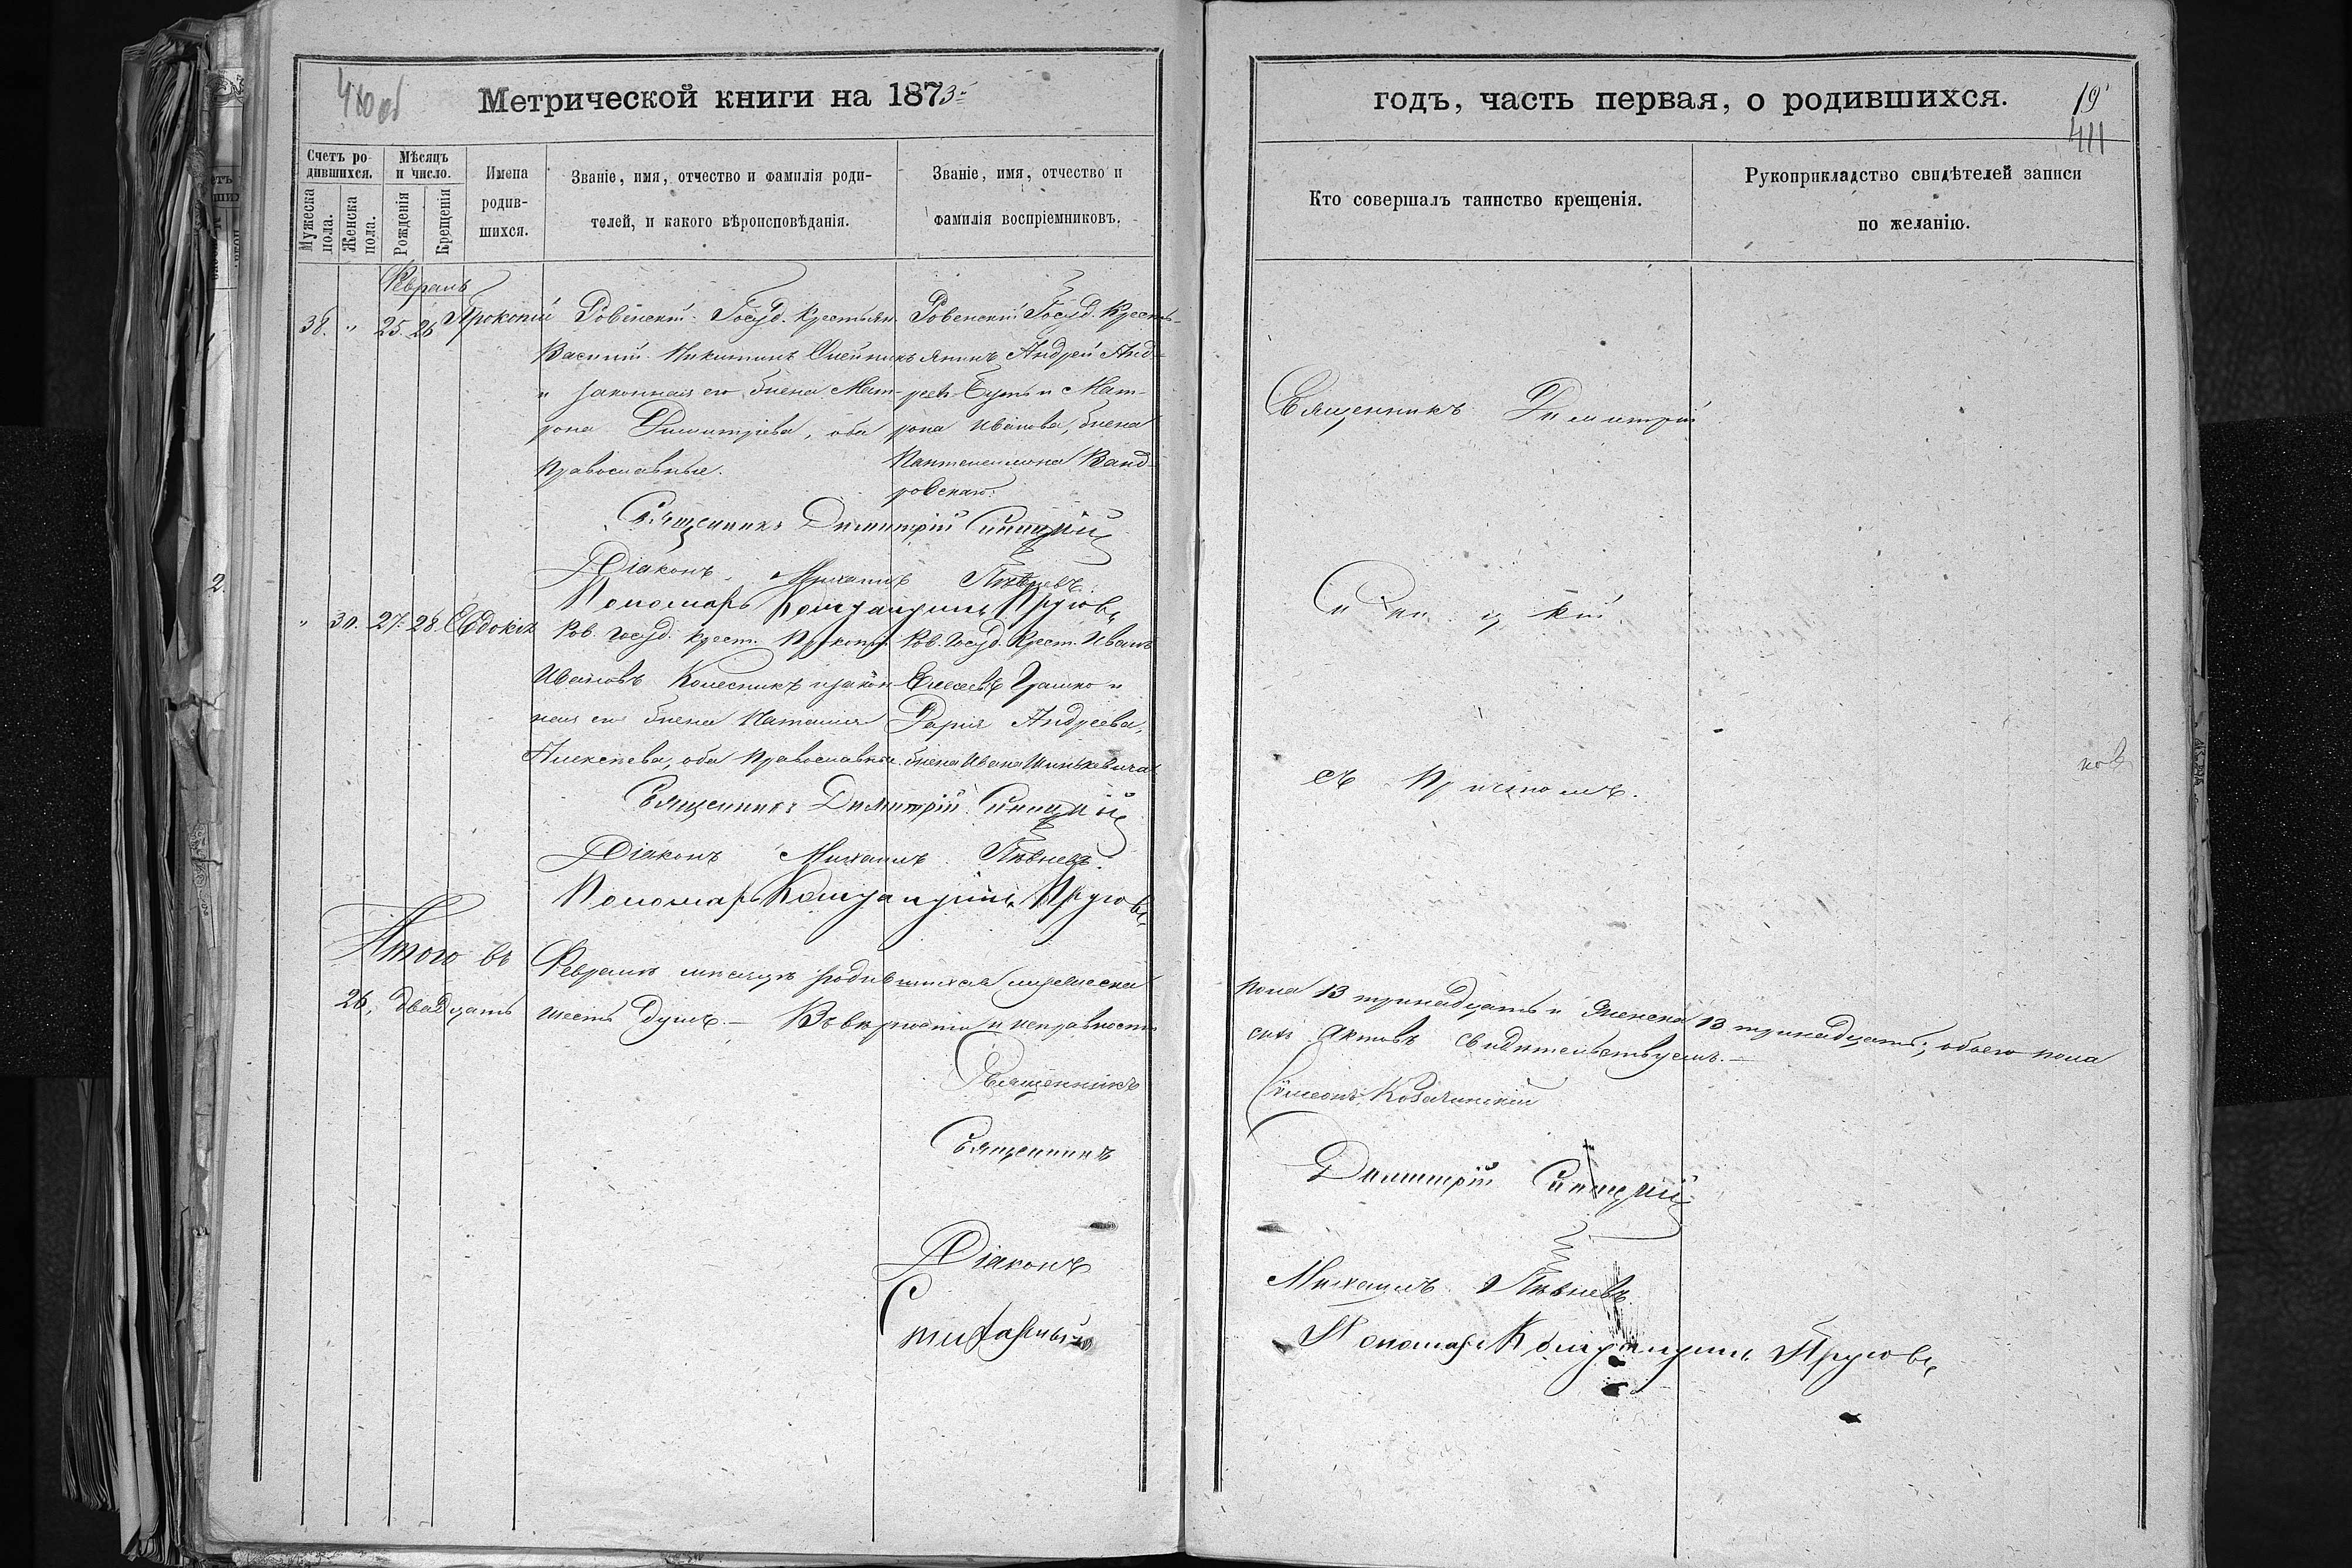 Метрической книги на 1873
годъ, часть первая, о родившихся.
19
411
Счетъ родившихся.
Мужеска пола.
Женска пола.
Мѣсяцъ и число.
Рожденія
Крещенія
Имена родившихся.
Званіе, имя, отчество и фамилія родителей, и какого вѣроисповѣданія.
Званіе, имя, отчество и фамилія воспріемниковъ.
Кто совершалъ таинство крещенія.
Рукоприкладство свидѣтелей записи по желанію.
38. " 25. 26 Прокопій
Ровенскій Госуд. Крестьян.
Василій Никитинъ Олейникъ
и законная его жена Мат-
рона Димитріева, оба
православные.
Ровенскій Госуд. Кресть-
янинъ Андрей Анд-
реевъ Бутъ и Мат-
рона Иванова, жена
Пантелеимона Ванд-
ровскаго.
Священникъ Димитрій Синицкій
Діаконъ Михаилъ Пѣвневъ
Пономарь Константинъ
" 30. 27. 28. Евдокія
Ров. Госуд. Крест. Прокопій
Ивановъ Колесникъ и закон-
ная его жена Наталия
Алексѣева, оба православные.
Ров. Госуд. Крест. Иванъ
Елисеевъ Грашко и
Дарія Андреева,
жена Ивана Шинкевича
Священникъ Димитрій Синицкій
Діаконъ Михаилъ Пѣвневъ
Пономарь Константинъ
Священникъ Димитрій
Синицкій
съ Причтомъ.
Итого въ Февралѣ мѣсяцѣ родившихся мужеска пола 13 тринадцать и женска 13 тринадцать; обоего пола
26, двадцать шесть душъ. – Въ вѣрности и исправности сихъ актовъ свидѣтельствуемъ. –
Священникъ Симеонъ Козачинскій
Священникъ Димитрій Синицкій
Діаконъ Михаилъ Пѣвневъ
Пономарь Константинъ